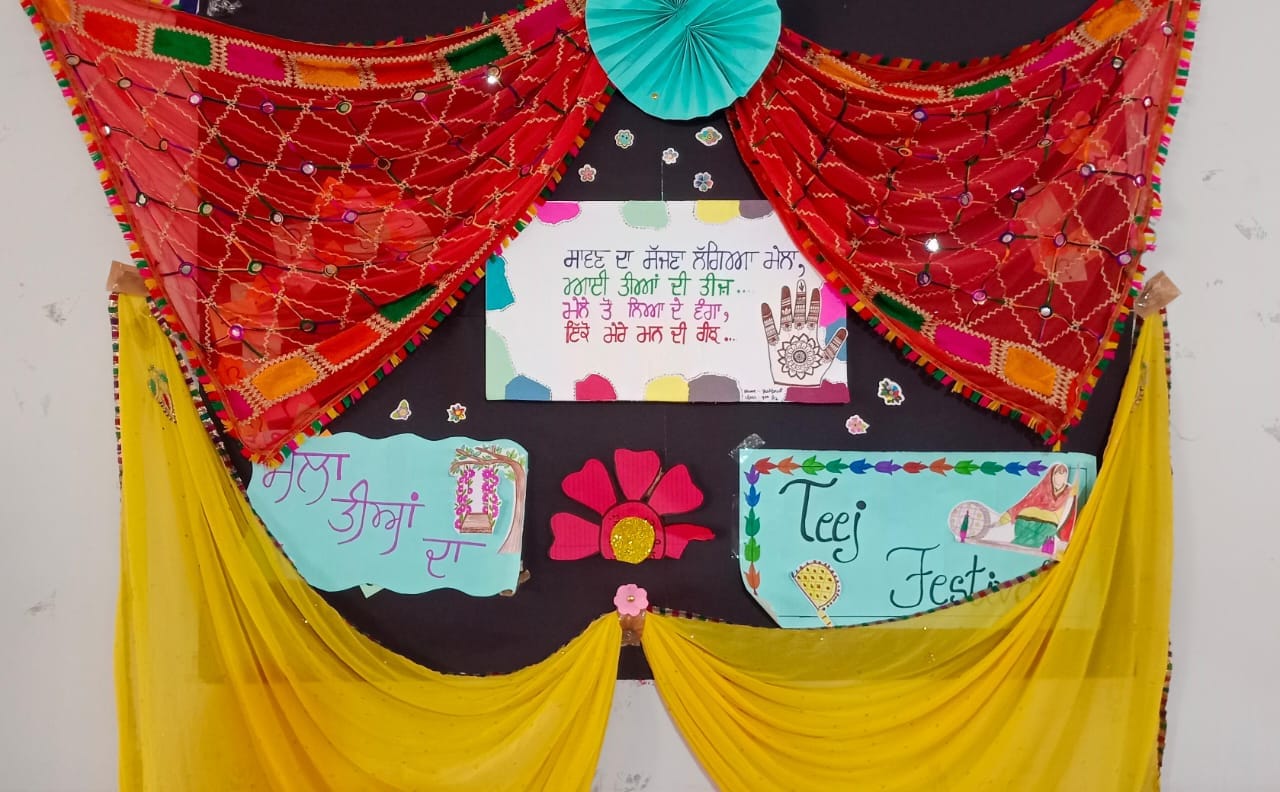 ਸਾਵਣ ਦਾ ਸੱਜਣਾ ਲੱਗਿਆ ਮੇਲਾ,
ਆਈ ਤੀਆਂ ਦੀ ਤੀਜ..
ਮੇਲੇ ਤੋਂ ਲਿਆ ਦੇ ਵੰਗਾ,
ਇੱਕੋ ਮੇਰੇ ਮਨ ਦੀ ਰੀਝ...
ਮੇਲਾ
ਤੀਆਂ
ਦਾ
Teej
Festival